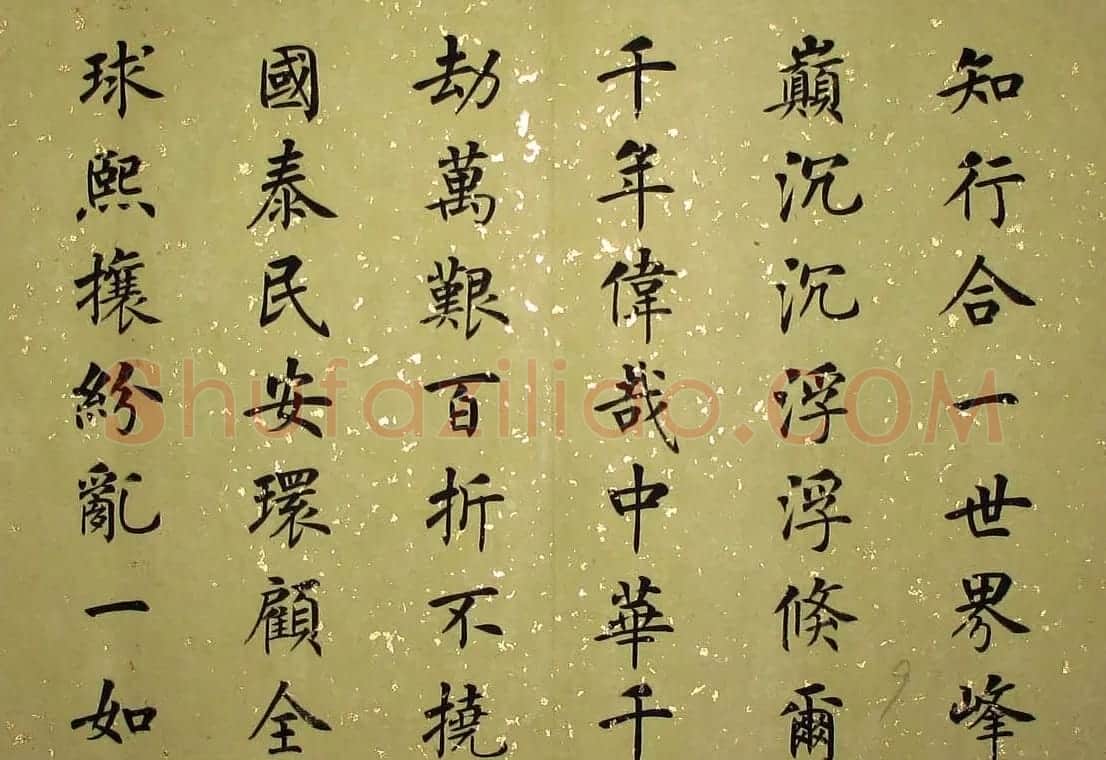 知行合一世界峰
巔沉沉浮浮倏爾
千年偉哉中華千
劫萬艱百折不撓
國泰民安環顧全
球熙攘紛亂一如
Shufaziliao.COM